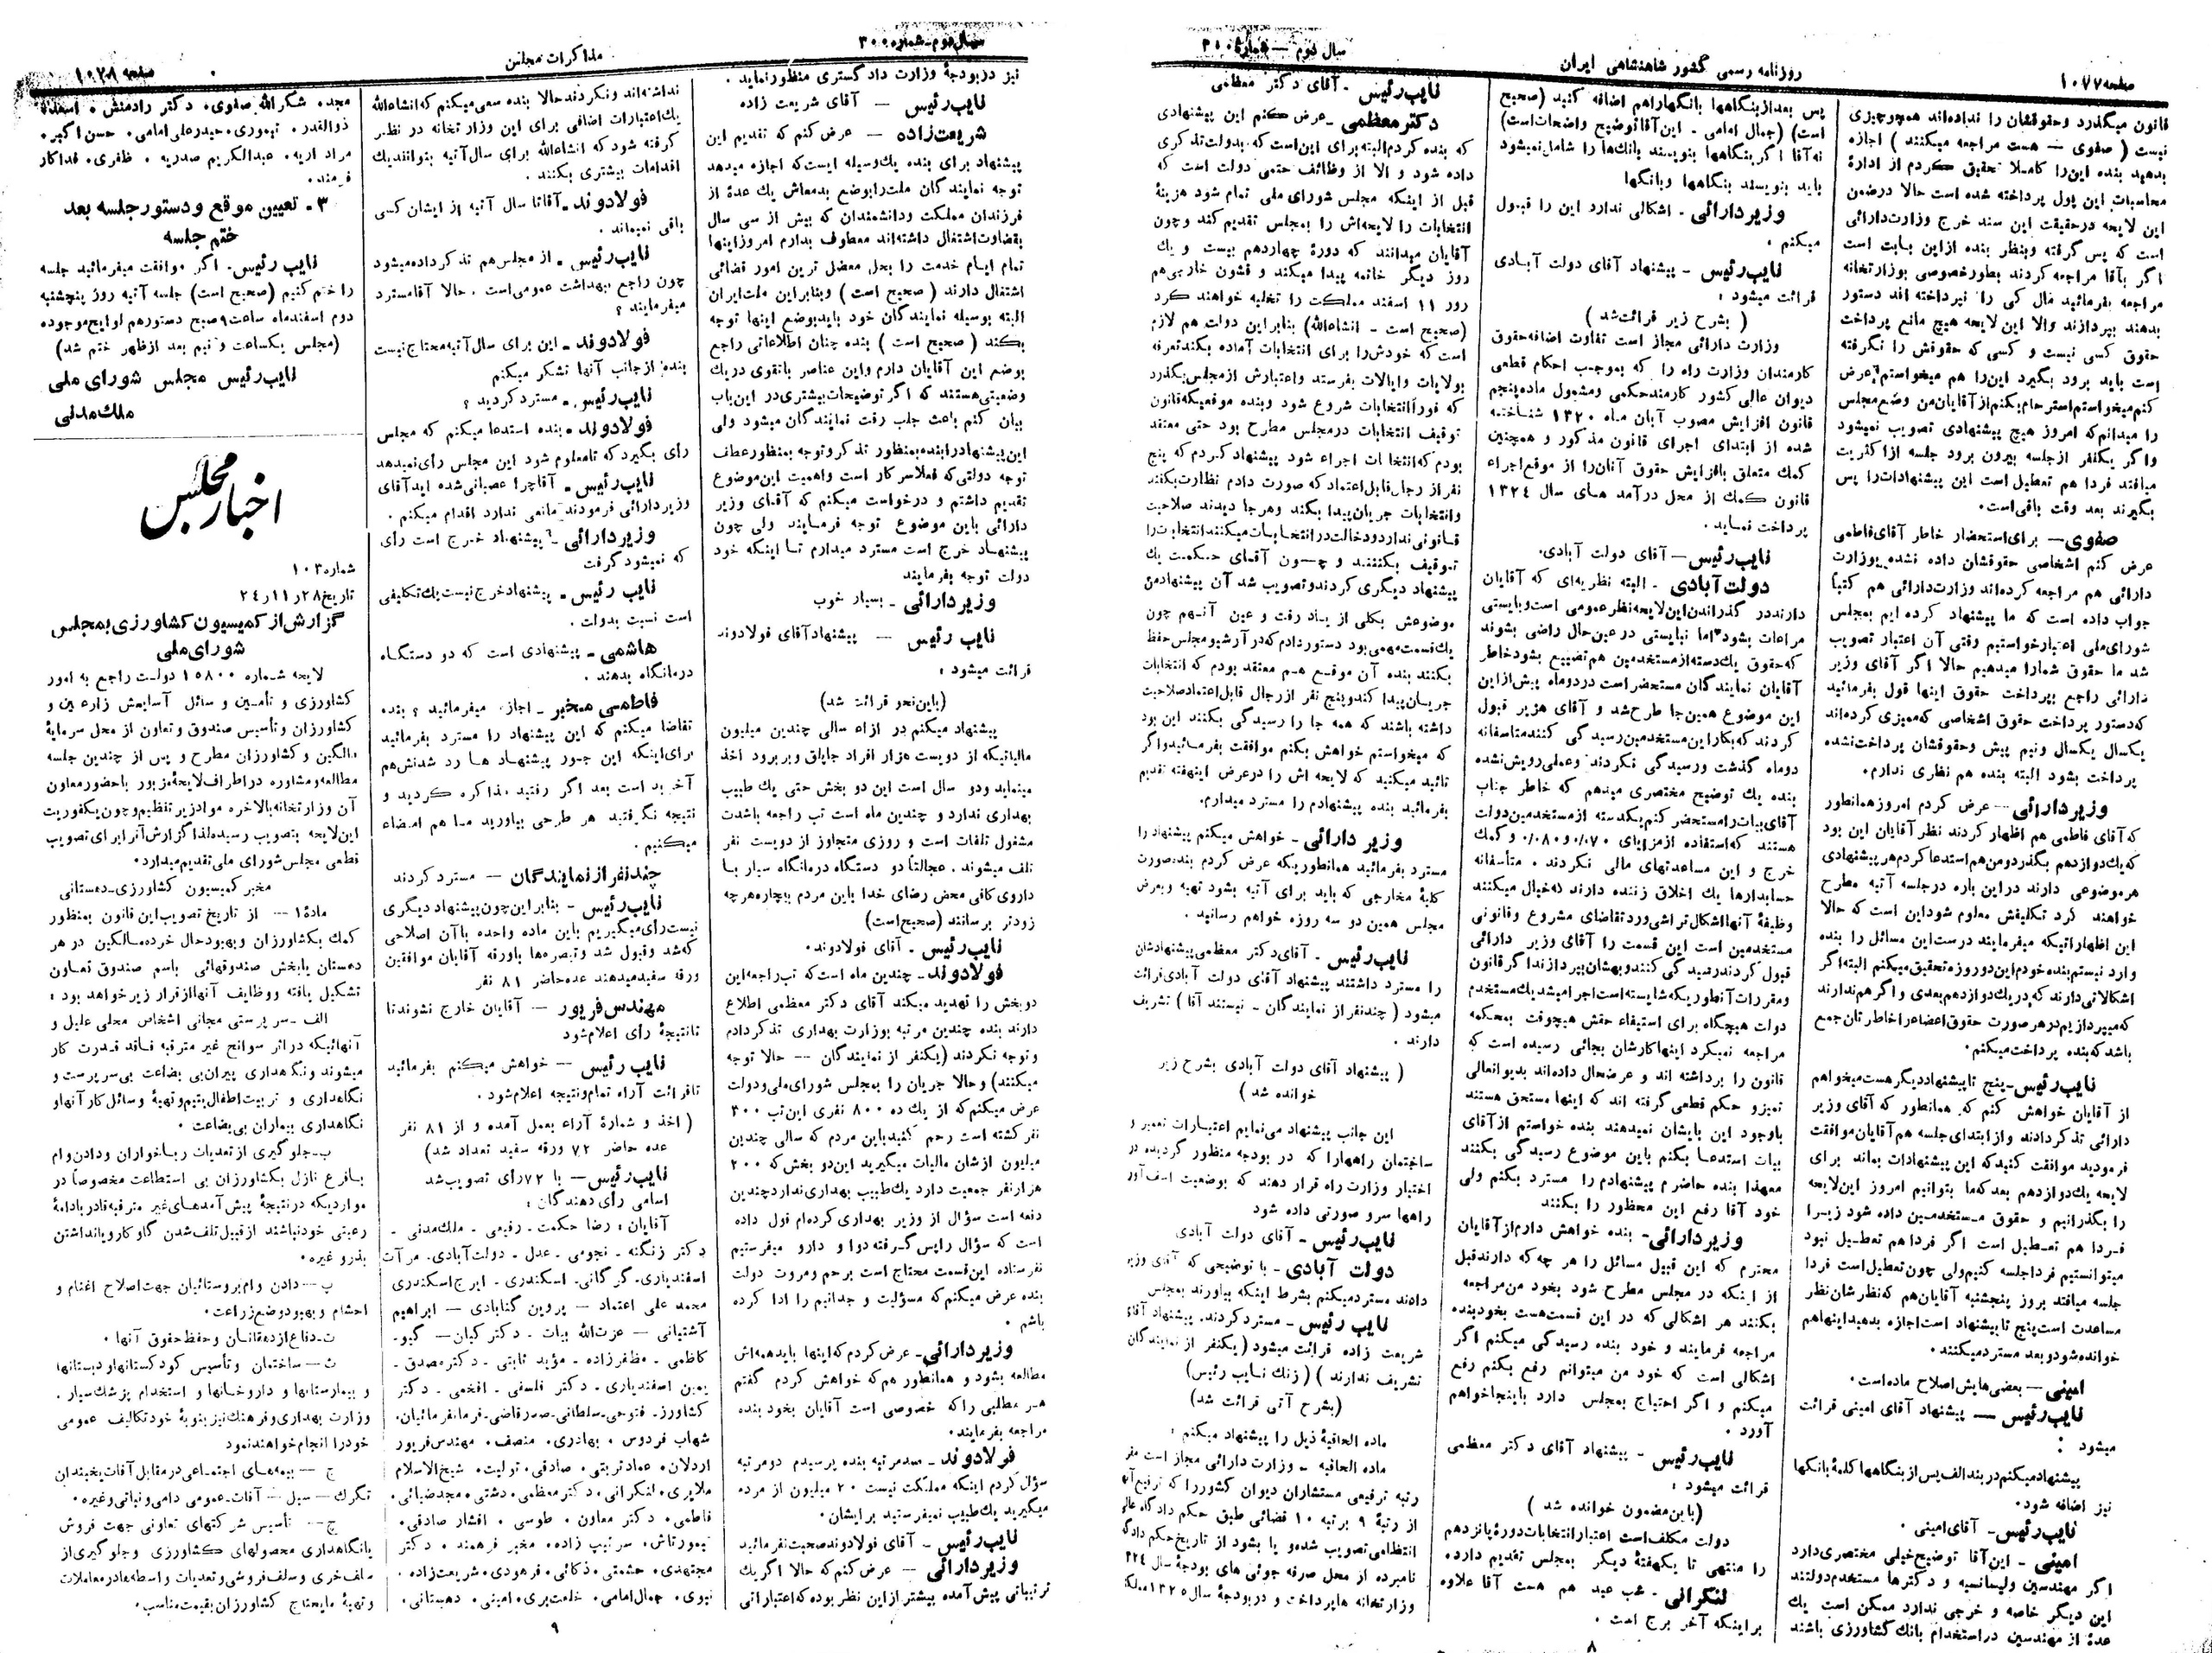 صفحه ۱۰۷۷
روزنامه رسمی کشور شاهنشاهی ایران
سال دوم — شماره ۳۰۰
قانون میگذرد وحقوقشان را نداده‌اند همچو چیزی
نیست ( صفوی — هست مراجعه میکنند ) اجازه
بدهید بنده این‌را کاملا تحقیق کردم از ادارهٔ
محاسبات این پول پرداخته شده است حالا درضمن
این لایحه درحقیقت این سند خرج وزارت‌دارائی
است که پس گرفته وبنظر بنده ازاین بابت است
اگر بآقا مراجعه کردند بطورخصوصی بوزارتخانه
مراجعه بفرمائید مال کی را نپرداخته اند دستور
بدهند بپردازند والا این لایحه هیچ مانع پرداخت
حقوق کسی نیست و کسی که حقوقش را نگرفته
است باید برود بگیرد این‌را هم میخواستم عرض
کنم میخواستم استرحام بکنم از آقایان من وضع مجلس
را میدانم که امروز هیچ پیشنهادی تصویب نمیشود
واگر یکنفر از جلسه بیرون برود جلسه از اکثریت
میافتد فردا هم تعطیل است این پیشنهادات را پس
بگیرند بعد وقت باقی‌است.
صفوی — برای‌استحضار خاطر آقای‌فاطمی
عرض کنم اشخاصی حقوقشان داده نشده بوزارت
دارائی هم مراجعه کرده‌اند وزارت‌دارائی هم کتباً
جواب داده است که ما پیشنهاد کرده ایم بمجلس
شورای‌ملی اعتبارخواستیم وقتی آن اعتبار تصویب
شد ما حقوق شمارا میدهیم حالا اگر آقای وزیر
دارائی راجع بپرداخت حقوق اینها قول بفرمائید
که‌دستور پرداخت حقوق اشخاصی که‌ممیزی کرده‌اند
یکسال یکسال ونیم پیش وحقوقشان پرداخت‌نشده
پرداخت بشود البته بنده هم نظری ندارم.
وزیردارائی — عرض کردم امروز همانطور
که‌آقای فاطمی هم اظهار کردند نظر آقایان این بود
که‌یک‌دوازدهم بگذرد ومن‌هم استدعا کردم هرپیشنهادی
هرموضوعی دارند دراین باره درجلسه آتیه مطرح
خواهند کرد تکلیفش معلوم شود این است که حالا
این اظهاراتیکه میفرمایند درست‌این مسائل را بنده
وارد نیستم بنده خودم این‌دو روزه‌تحقیق میکنم البته‌اگر
اشکالاتی دارند که در یک دوازدهم بعدی و اگر هم ندارند
که میپردازیم در هر صورت حقوق اعضاء را خاطرتان جمع
باشد که بنده پرداخت میکنم.
نایب‌رئیس — پنج تا پیشنهاد دیگر هست میخواهم
از آقایان خواهش کنم که همانطور که آقای وزیر
دارائی تذکر دادند واز ابتدای جلسه هم آقایان موافقت
فرمودید موافقت کنید که این پیشنهادات بماند برای
لایحه یک‌دوازدهم بعد که‌ما بتوانیم امروز این‌لایحه
را بگذرانیم و حقوق مستخدمین داده شود زیرا
فردا هم تعطیل است اگر فردا هم تعطیل نبود
میتوانستیم فردا جلسه کنیم ولی چون تعطیل است فردا
جلسه میافتد بروز پنجشنبه آقایان هم که‌نظرشان‌نظر
مساعدت است پنج تا پیشنهاد است اجازه بدهید اینها هم
خوانده‌شود وبعد مسترد میکنند.
امینی — بعضی‌هایش اصلاح ماده‌است.
نایب‌رئیس — پیشنهاد آقای امینی قرائت
میشود :
پیشنهاد میکنم در بند الف پس از بنگاهها کلمهٔ بانکها
نیز اضافه شود.
نایب‌رئیس — آقای‌امینی .
امینی — این‌آقا توضیح خیلی مختصری‌دارد
اگر مهندسین ولیسانسیه و دکترها مستخدم دولتند
این دیگر خاصه و خرجی ندارد ممکن است یك
عدهٔ از مهندسین در استخدام بانک کشاورزی باشند
پس بعد از بنگاهها بانکها را هم اضافه کنید (صحیح
است) (جمال امامی - این‌آقا توضیح واضحات‌است)
نه‌آقا اگر بنگاهها بنویسند بانك‌ها را شامل‌نمیشود
باید بنویسند بنگاهها وبانکها
وزیردارائی - اشکالی ندارد این را قبول
میکنم .
نایب‌رئیس — پیشنهاد آقای دولت آبادی
قرائت میشود :
( بشرح زیر قرائت‌شد )
وزارت دارائی مجاز است تفاوت اضافه‌حقوق
کارمندان وزارت راه را که بموجب احکام قطعی
دیوان عالی کشور کارمند حکمی ومشمول ماده‌پنجم
قانون افزایش مصوب آبان ماه ۱۳۲۰ شناخته
شده از ابتدای اجرای قانون مذکور و همچنین
کمك متعلق بافزایش حقوق آنان‌را از موقع‌اجراء
قانون کمك از محل درآمد های سال ۱۳۲۴
پرداخت نماید.
نایب‌رئیس — آقای دولت آبادی.
دولت‌آبادی - البته نظریه‌ای که آقایان
دارند در گذراندن این لایحه نظر عمومی است وبایستی
مراعات بشود اما نبایستی در عین‌حال راضی بشوند
که‌حقوق یك‌دسته از مستخدمین هم تضییع بشود خاطر
آقایان نمایندگان مستحضراست دردوماه پیش‌ازاین
این موضوع همین‌جا طرح‌شد و آقای هژیر قبول
کردند که‌بکار این‌مستخدمین رسیدگی کنند متأسفانه
دوماه گذشت ورسیدگی نکردند وعملی رویش‌نشده
بنده یك توضیح مختصری میدهم که خاطر جناب
آقای بیات را مستحضر کنم یکدسته از مستخدمین‌دولت
هستند که استفاده از مزایای ۰/۰۷۰ و ۰/۰۸۰ و کمك
خرج و این مساعدتهای مالی نکردند . متأسفانه
حسابدارها یك اخلاق زننده دارند که خیال میکنند
وظیفهٔ آنها اشکال‌تراشی ورد تقاضای مشروع وقانونی
مستخدمین است این قسمت را آقای وزیر دارائی
قبول کردند رسیدگی کنند وبهشان بپردازند اگر قانون
ومقررات آنطوریکه شایسته‌است اجرا میشد یك‌مستخدم
دولت هیچگاه برای استیفاء حقش هیچوقت بمحکمه
مراجعه نمیکرد اینها کارشان بجائی رسیده است که
قانون را برداشته اند و عرضحال داده‌اند بدیوانعالی
تمیز و حکم قطعی گرفته اند که اینها مستحق هستند
باوجود این بایشان نمیدهند بنده خواستم از آقای
بیات استدعا بکنم باین موضوع رسیدگی بکنند
معهذا بنده حاضرم پیشنهادم را مسترد بکنم ولی
خود آقا رفع این محظور را بکنند
وزیردارائی — بنده خواهش دارم از آقایان
محترم که این قبیل مسائل را هر چه که دارند قبل
از اینکه در مجلس مطرح شود بخود من‌مراجعه
بکنند هر اشکالی که در این قسمت‌هست بخودبنده
مراجعه فرمایند و خود بنده رسیدگی میکنم اگر
اشکالی است که خود من میتوانم رفع بکنم رفع
میکنم و اگر احتیاج بمجلس دارد باینجا خواهم
آورد .
نایب‌رئیس - پیشنهاد آقای دکتر معظمی
قرائت میشود :
(باین‌مضمون خوانده شد )
دولت مکلف‌است اعتبار انتخابات دورهٔ پانزدهم
را منتهی تا یکهفتهٔ دیگر بمجلس تقدیم دارد.
لنکرانی - شب عید هم هست آقا علاوه
براینکه آخر برج است .
نایب‌رئیس - آقای دکتر معظمی
دکتر معظمی — عرض کنم این پیشنهادی
که بنده کردم البته برای این‌است که بدولت تذکری
داده شود و الا از وظائف حتمی دولت است که
قبل از اینکه مجلس شورای ملی تمام شود هزینهٔ
انتخابات را لایحه‌اش را بمجلس تقدیم کند وچون
آقایان میدانند که دورهٔ چهاردهم بیست و یك
روز دیگر خاتمه پیدا میکند و قشون خارجی‌هم
روز ۱۱ اسفند مملکت را تخلیه خواهند کرد
(صحیح است - انشاءالله) بنابراین دولت هم لازم
است که خودش‌را برای انتخابات آماده بکند تعرفه
بولایات وایالات بفرستد واعتبارش از مجلس بگذرد
که فوراً انتخابات شروع شود وبنده موقعیکه قانون
توقیف انتخابات درمجلس مطرح بود حتی معتقد
بودم که انتخابات اجراء شود پیشنهاد کردم که پنج
نفر از رجال قابل‌اعتماد که صورت دادم نظارت بکنند
وانتخابات جریان پیدا بکند وهرجا دیدند صلاحیت
قانونی ندارد ودخالت در انتخابات میکنند انتخابات را
توقیف بکنند و چون آقای حکمت یك
پیشنهاد دیگری کردند وتصویب شد آن پیشنهاد من
موضوعش بکلی از یاد رفت و عین آنهم چون
یك‌قسمت مهمی بود دستور دادم که در آرشیو مجلس حفظ
بکنند بنده آن موقع هم معتقد بودم که انتخابات
جریان پیدا کند وپنج نفر از رجال قابل اعتماد صلاحیت
داشته باشند که همه جا را رسیدگی بکنند این بود
که میخواستم خواهش بکنم موافقت بفرمائید واگر
تائید میکنید که لایحه اش را در عرض اینهفته تقدیم
بفرمائید بنده پیشنهادم را مسترد میدارم.
وزیر دارائی - خواهش میکنم پیشنهاد را
مسترد بفرمائید همانطوریکه عرض کردم بنده‌صورت
کلیهٔ مخارجی که باید برای آتیه بشود تهیه وبعرض
مجلس همین دو سه روزه خواهم رسانید .
نایب‌رئیس - آقای‌دکتر معظمی‌پیشنهادشان
را مسترد داشتند پیشنهاد آقای دولت آبادی‌قرائت
میشود (چندنفر از نمایندگان - نیستند آقا ) تشریف
دارند .
( پیشنهاد آقای دولت آبادی بشرح زیر
خوانده شد )
این جانب پیشنهاد می‌نمایم اعتبارات تعمیر و
ساختمان راهها را که در بودجه منظور گردیده در
اختیار وزارت راه قرار دهند که بوضعیت اسف‌آور
راهها سر و صورتی داده شود
نایب‌رئیس - آقای دولت آبادی
دولت آبادی — با توضیحی که آقای وزیر
دادند مسترد میکنم بشرط اینکه بیاورند بمجلس
نایب رئیس - مسترد کردند. پیشنهاد آقای
شریعت زاده قرائت میشود (یکنفر از نمایندگان
تشریف ندارند ) (زنك نایب رئیس)
(بشرح آتی قرائت شد)
ماده الحاقیهٔ ذیل را پیشنهاد میکنم :
ماده الحاقیه - وزارت دارائی مجاز است
رتبه ترفیعی مستشاران دیوان کشور را که ترفیع
از رتبهٔ ۹ برتبه ۱۰ قضائی طبق حکم دادگاه عالی
انتظامی تصویب شده‌و یا بشود از تاریخ حکم
نامبرده از محل صرفه جوئی های بودجهٔ سال
وزارتخانه ها پرداخت و در بودجهٔ سال ۱۳۲۵
۸
سال دوم — شماره ۳۰۰
مذاکرات مجلس
صفحه ۱۰۷۸
نیز در بودجهٔ وزارت دادگستری منظور نماید .
نایب‌رئیس — آقای شریعت زاده
شریعت‌زاده — عرض کنم که تقدیم این
پیشنهاد برای بنده یك‌وسیله ایست که اجازه میدهد
توجه نمایندگان ملت را بوضع بد معاش یك عدهٔ از
فرزندان مملکت ودانشمندان که بیش از سی سال
بقضاوت‌اشتغال داشته‌اند معطوف بدارم امروز اینها
تمام ایام خدمت را بحل معضل ترین امور قضائی
اشتغال دارند ( صحیح است ) وبنابراین ملت‌ایران
البته بوسیله نمایندگان خود باید بوضع اینها توجه
بکند ( صحیح است ) بنده چنان اطلاعاتی راجع
بوضع این آقایان دارم واین عناصر باتقوی دریك
وضعیتی‌هستند که اگر توضیحات بیشتری در این‌باب
بیان کنم باعث جلب رقت نمایندگان میشود ولی
این‌پیشنهاد را بنده‌بمنظور تذکر وتوجه بمنظور عطف
توجه دولتی‌که فعلا سر کار است واهمیت این‌موضوع
تقدیم داشتم و درخواست میکنم که آقای وزیر
دارائی باین موضوع توجه فرمایند ولی چون
پیشنهاد خرج است مسترد میدارم تا اینکه خود
دولت توجه بفرمایند
وزیردارائی - بسیار خوب
نایب رئیس — پیشنهاد آقای فولادوند
قرائت میشود :
(باین‌نحو قرائت شد)
پیشنهاد میکنم در ازاء سالی چندین میلیون
مالیاتیکه از دویست هزار افراد جاپلق و بربرود اخذ
مینماید ودو سال است این دو بخش حتی یك طبیب
بهداری ندارد و چندین ماه است تب راجعه باشدت
مشغول تلفات است و روزی متجاوز از دویست نفر
تلف میشوند . عجالتاً دو دستگاه درمانگاه سیار با
داروی کافی محض رضای خدا باین مردم بیچاره هرچه
زودتر برسانند (صحیح‌است)
نایب‌رئیس - آقای فولادوند.
فولادوند - چندین ماه است که تب راجعه‌این
دوبخش را تهدید میکند آقای دکتر معظمی اطلاع
دارند بنده چندین مرتبه بوزارت بهداری تذکردادم
وتوجه نکردند (یکنفر از نمایندگان — حالا توجه
میکنند) وحالا جریان را بمجلس شورای‌ملی ودولت
عرض میکنم که از یك ده ۸۰۰ نفری این‌تب ۳۰۰
نفر کشته است رحم کنید باین مردم که سالی چندین
میلیون ازشان مالیات میگیرید این‌دو بخش که ۲۰۰
هزارنفر جمعیت دارد یك‌طبیب بهداری ندارد چندین
دفعه است سؤال از وزیر بهداری کرده‌ام قول داده
است که سؤال راپس گرفته دوا و دارو میفرستیم
نفرستاده این‌قسمت محتاج است برحم ومروت دولت
بنده عرض میکنم که مسؤلیت و جدانیم را ادا کرده
باشم .
وزیردارائی - عرض کردم که‌اینها باید همه‌اش
مطالعه بشود و همانطور هم‌که خواهش کردم گفتم
هر مطلبی را که خصوصی است آقایان بخود بنده
مراجعه بفرمایند.
فولادوند - صدمرتبه بنده پرسیدم دومرتبه
سؤال کردم اینکه مملکت نیست ۲۰ میلیون از مرده
میگیرید یك‌طبیب نمیفرستید برایشان.
نایب‌رئیس - آقای فولادوند صحبت نفرمائید
وزیردارائی — عرض کنم که حالا اگر یك
ترتیباتی پیش‌آمده بیشتر از این نظر بوده که‌اعتباراتی
نداشته‌اند ونکردند حالا بنده سعی میکنم که انشاءالله
یك‌اعتبارات اضافی برای این وزارتخانه در نظر
گرفته شود که انشاءالله برای سال آتیه بتوانند یك
اقدامات بیشتری بکنند .
فولادوند - آقا تا سال آتیه از ایشان کسی
باقی نمیماند .
نایب‌رئیس - از مجلس هم تذکر داده میشود
چون راجع ببهداشت عمومی است . حالا آقا مسترد
میفرمایند ؟
فولادوند - این برای سال آتیه محتاج نیست
بنده از جانب آنها تشکر میکنم
نایب‌رئیس - مسترد کردید ؟
فولادوند - بنده استدعا میکنم که مجلس
رأی بگیرد که تامعلوم شود این مجلس رأی‌نمیدهد
نایب‌رئیس - آقا چرا عصبانی شده اید آقای
وزیردارائی فرمودند مانعی ندارد اقدام میکنم .
وزیردارائی - پیشنهاد خرج است رأی
که نمیشود گرفت
نایب رئیس - پیشنهاد خرج نیست یك تکلیفی
است نسبت بدولت .
هاشمی - پیشنهادی است که دو دستگاه
درمانگاه بدهند .
فاطمی مخبر - اجازه میفرمائید ؟ بنده
تقاضا میکنم که این پیشنهاد را مسترد بفرمائید
برای‌اینکه این جور پیشنهاد ها رد شدنش‌هم
آخر بد است بعد اگر رفتید مذاکره کردید و
نتیجه نگرفتید هر طرحی بیاورید ما هم امضاء
میکنیم .
چند نفر از نمایندگان — مسترد کردند
نایب‌رئیس - بنابراین چون پیشنهاد دیگری
نیست رأی میگیریم باین ماده واحده باآن اصلاحی
که‌شد وقبول شد وتبصره‌ها باورقه آقایان موافقین
ورقه سفید میدهند عده‌حاضر ۸۱ نفر
مهندس فریور — آقایان خارج نشوند تا
تانتیجهٔ رأی اعلام‌شود
نایب رئیس — خواهش میکنم بفرمائید
تاقرائت آراء تمام‌ونتیجه اعلام‌شود.
( اخذ و شمارهٔ آراء بعمل آمده و از ۸۱ نفر
عده حاضر ۷۲ ورقه سفید تعداد شد)
نایب‌رئیس — با ۷۲ رأی تصویب‌شد
اسامی رأی دهندگان :
آقایان : رضا حکمت - رفیعی - ملك‌مدنی -
دکتر زنگنه - نجومی - عدل - دولت‌آبادی. مرآت
اسفندیاری. گرگانی. اسکندری - ایرج اسکندری
محمد علی اعتماد — پروین گنابادی — ابراهیم
آشتیانی — عزت‌الله بیات - دکتر کیان — گیو.
کاظمی - مظفرزاده - مؤید ثابتی - دکتر مصدق -
یمین اسفندیاری. دکتر فلسفی - افخمی - دکتر
کشاورز - فتوحی - سلطانی - صدرقاضی - فرمانفرمائیان.
شهاب فردوس . بهادری. منصف. مهندس فریور
اردلان. عماد تربتی . صادقی . تولیت. شیخ‌الاسلام
ملایری. لنکرانی. دکتر معظمی. دشتی. مجد ضیائی.
فاطمی. دکتر معاون . طوسی . افشار صادقی.
تیمورتاش. سرتیپ زاده. مخبر فرهمند . دکتر
مجتهدی. حشمتی. ذکائی. فرهودی. شریعت‌زاده.
نبوی. جمال‌امامی. خلعت‌بری. امینی. دهستانی.
مجد. شکرالله صفوی. دکتر رادمنش . اسعد.
ذوالقدر . تهوری. حیدرعلی امامی. حسن اکبر.
مراد اریه . عبدالکریم صدریه . ظفری. فداکار
فرمند.
۳ - تعیین موقع ودستور جلسه بعد
ختم جلسه
نایب رئیس. اگر موافقت میفرمائید جلسه
را ختم کنیم (صحیح است) جلسه آتیه روز پنچشنبه
دوم اسفندماه ساعت۹ صبح دستورهم لوایح موجوده
(مجلس یکساعت و نیم بعد از ظهر ختم شد)
نایب رئیس مجلس شورای ملی
ملك‌مدنی
اخبار مجلس
شماره ۱۰۳
تاریخ ۲۸ ر ۱۱ ر ۲۴
گزارش از کمیسیون کشاورزی بمجلس
شورای ملی
لایحه شماره ۱۵۸۰۰ دولت راجع به امور
کشاورزی و تأمین و سائل آسایش زارعین و
کشاورزان وتأسیس صندوق وتعاون از محل سرمایهٔ
مالکین و کشاورزان مطرح و پس از چندین جلسه
مطالعه‌ومشاوره دراطراف لایحهٔ‌مزبور باحضور معاون
آن وزارتخانه بالاخره موادزیر تنظیم وچون بکفوریت
این‌لایحه بتصویب رسیده لذا گزارش آنرا برای‌تصویب
قطعی مجلس شورای ملی تقدیم میدارد.
مخبر کمیسیون کشاورزی ـ دهستانی
مادهٔ ۱ — از تاریخ تصویب این قانون بمنظور
کمك بکشاورزان وبهبود حال خرده مالکین در هر
دهستان یابخش صندوقهائی باسم صندوق تعاون
تشکیل یافته ووظایف آنها از قرار زیر خواهد بود :
الف - سرپرستی مجانی اشخاص محلی علیل و
آنهائیکه در اثر سوانح غیر مترقبه فاقد قدرت کار
میشوند ونگاهداری پیران‌بی بضاعت بی‌سرپرست و
نگاهداری و تربیت اطفال یتیم وتهیهٔ وسائل کار آنها و
نگاهداری بیماران بی‌بضاعت .
ب - جلوگیری از تعدیات رباخواران ودادن وام
بافرع نازل بکشاورزان بی استطاعت مخصوصاً در
مواردیکه درنتیجهٔ پیش آمدهای‌غیر مترقبه قادر بادامهٔ
رعیتی خود نباشند از قبیل تلف شدن گاو کار ویا نداشتن
بذرو غیره.
پ — دادن وام بروستائیان جهت اصلاح اغنام و
احشام و بهبود وضع زراعت.
ت - دفاع از دهقانان وحفظ حقوق آنها .
ث — ساختمان وتأسیس کودکستانها ودبستانها
و بیمارستانها و داروخانها و استخدام پزشك‌سیار .
وزارت بهداری وفرهنك نیز بنوبهٔ خود تکالیف عمومی
خود را انجام خواهند نمود
ج — بیمه‌های اجتماعی در مقابل آفات یخبندان
تگرك — سیل — آفات عمومی دامی ونباتی وغیره.
چ — تأسیس شرکتهای تعاونی جهت فروش
یا نگاهداری محصولهای کشاورزی وجلوگیری از
سلف‌خری و سلف‌فروشی وتعدیات واسطه‌ها در معاملات
وتهیهٔ مایحتاج کشاورزان بقیمت مناسب.
۹